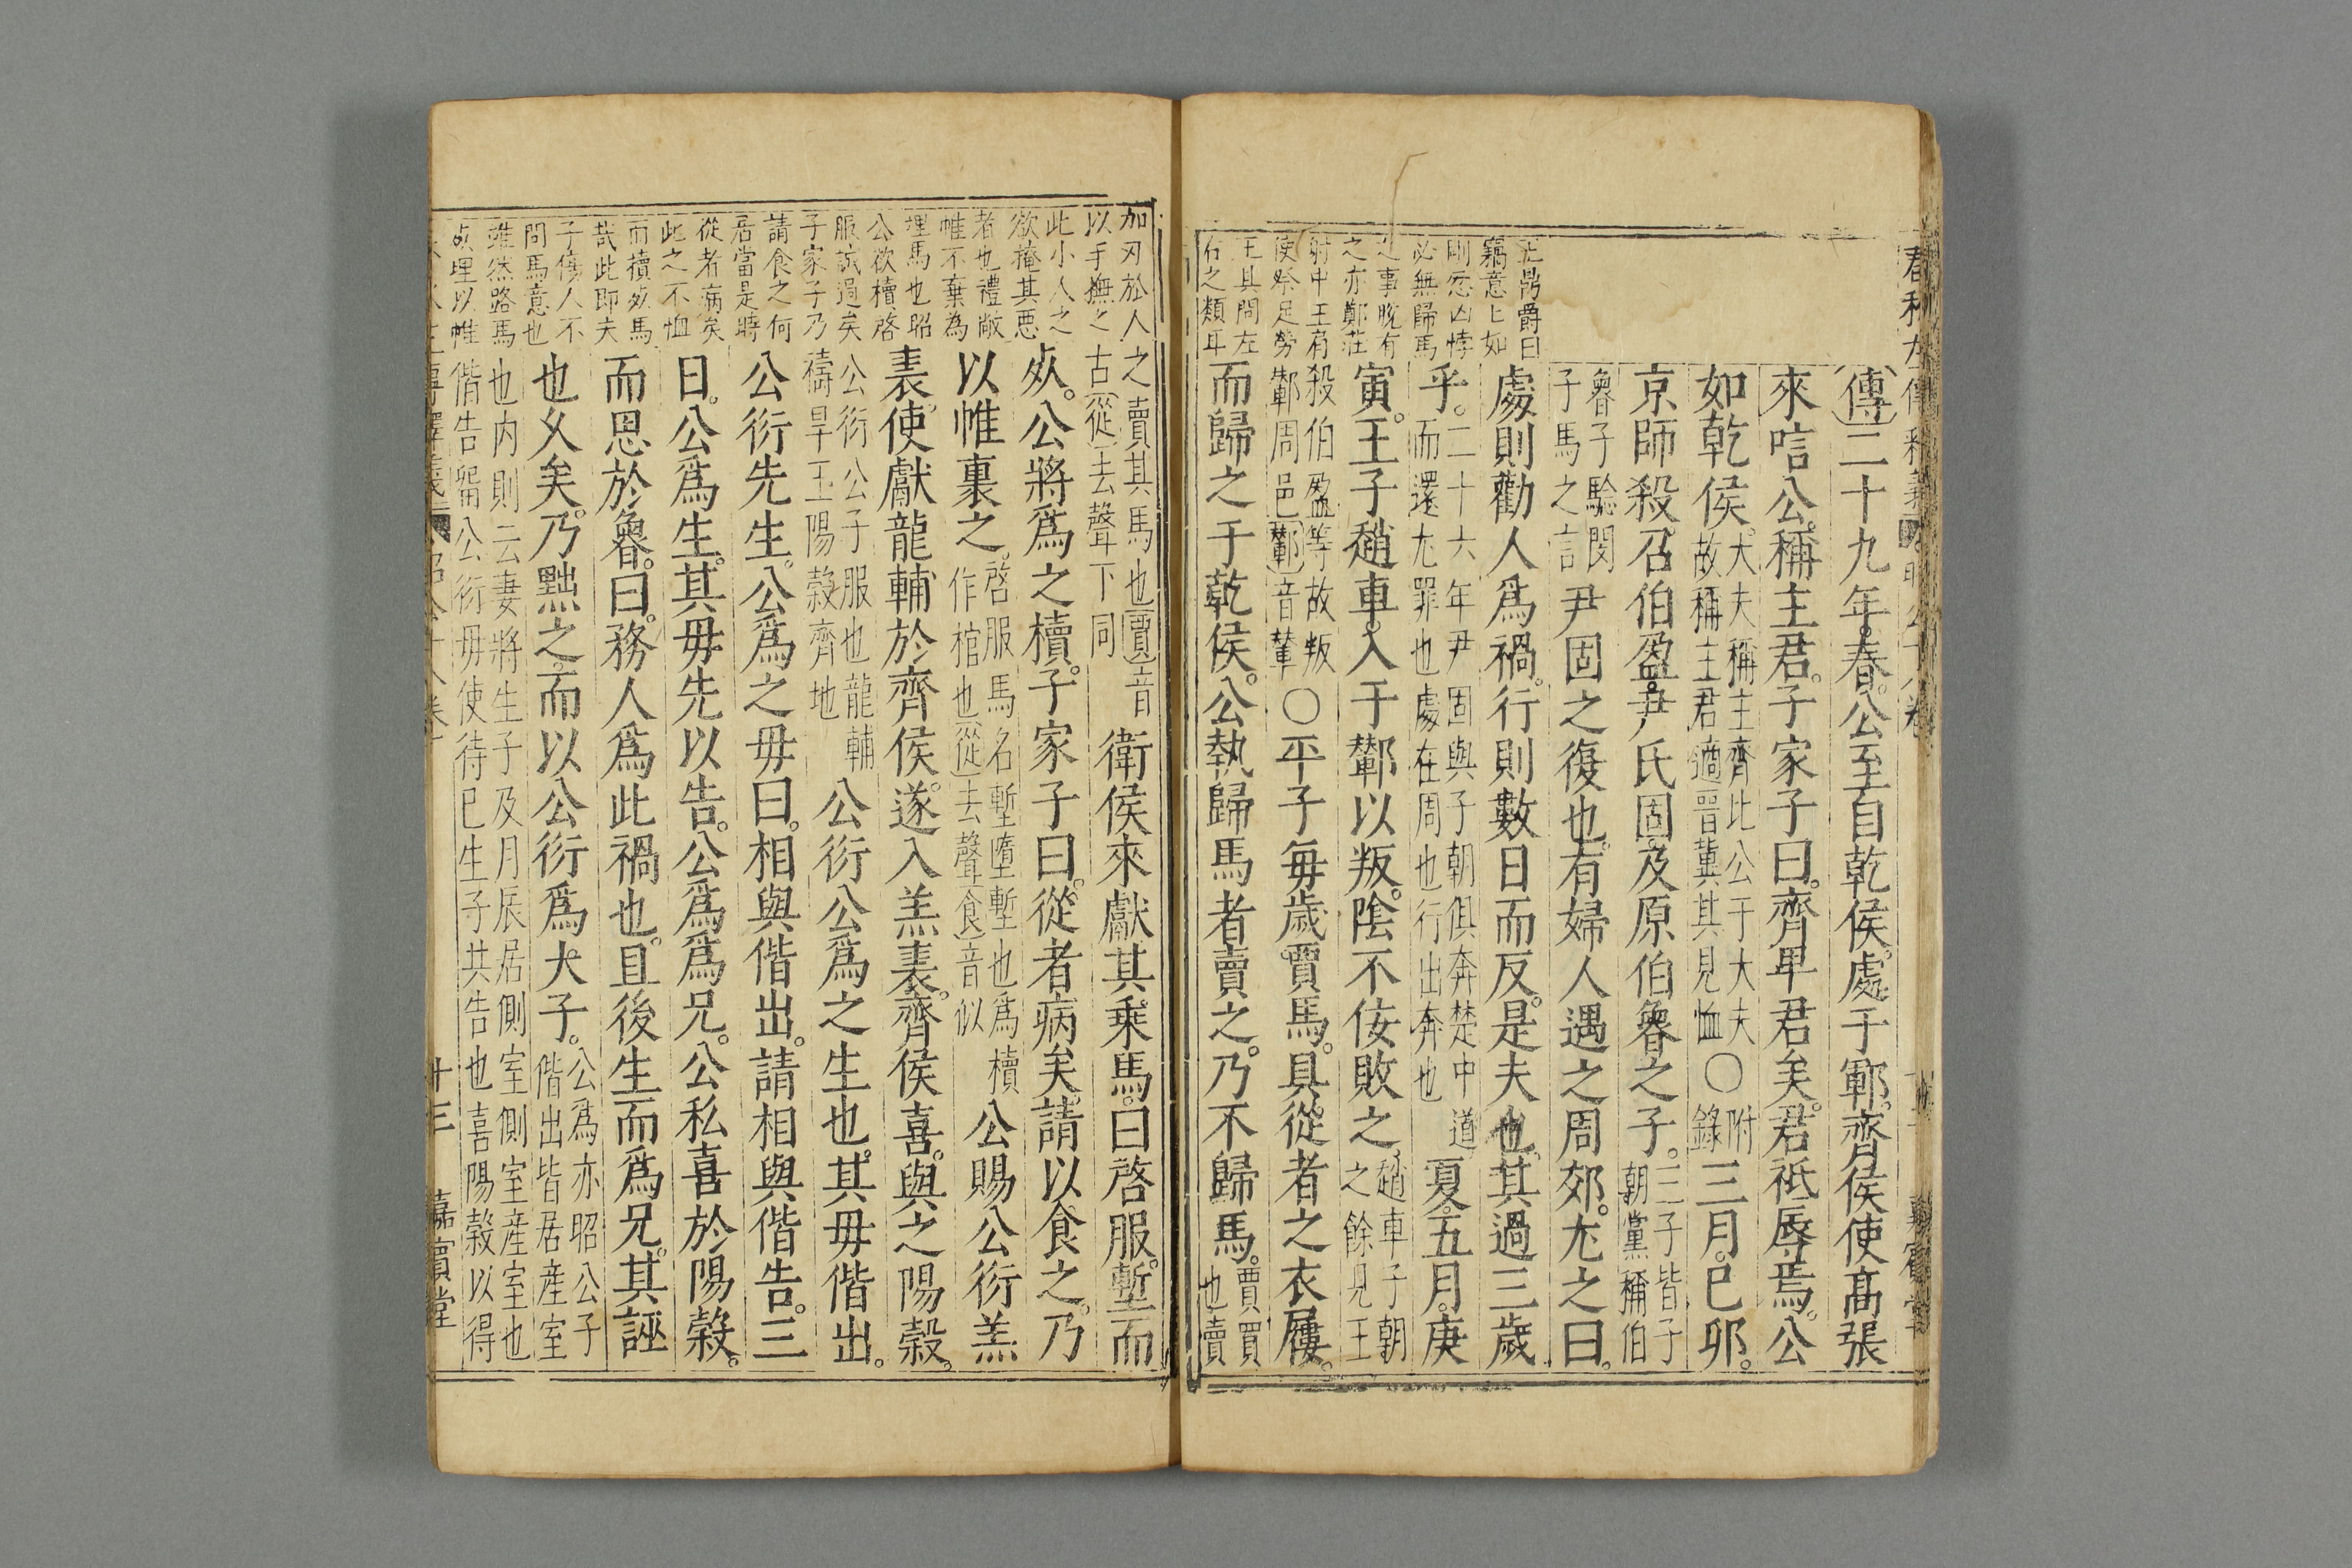 春秋左傳釋義 昭公十八卷 嘉賓堂
王鼎爵曰
竊意上如
剛忍凶悖
必無歸馬
之事脫有
之亦鄭莊
射中王肩
使祭足勞
王其問左
右之類耳
傳二十九年。春。公至自乾侯。處于鄆。齊侯使高張
來唁公。稱主君。子家子曰。齊卑君矣。君祗辱焉。公
如乾侯。大夫稱主齊比公于大夫故稱主君適晋冀其見恤○附錄三月。己卯。
京師殺召伯盈。尹氏固。及原伯魯之子。三子皆子朝黨稱伯
魯子騐閔子馬之言尹固之復也。有婦人遇之周郊。尤之曰。
處則勸人爲禍。行則數日而反。是夫也。其過三歲
乎。二十六年尹固與子朝俱奔楚中道而還尤罪也處在周也行出奔也夏。五月。庚
寅。王子趙車。入于鄻以叛。陰不佞敗之。趙車子朝之餘見王
殺伯盈等故叛鄻周邑鄻音輦○平子每歲賈馬。具從者之衣屨。
而歸之于乾侯。公執歸馬者賣之。乃不歸馬。賈買也賣
加刃於人
以手撫之
此小人之
欲掩其惡
者也禮敝
帷不棄為
埋馬也昭
公欲櫝啓
服誠過矣
子家子乃
請食之何
居當是時
從者病矣
此之不恤
而櫝𣦸馬
哉此即夫
子傷人不
問馬意也
雖然路馬
𣦸埋以帷
之賣其馬也賈音古從去聲下同衛侯來獻其乘馬。曰啓服。塹而
𣦸。公將爲之櫝。子家子曰。從者病矣。請以食之。乃
以帷裹之。啓服馬名塹墮塹也爲櫝作棺也從去聲食音似公賜公衍羔
裘。使獻龍輔於齊侯。遂入羔裘。齊侯喜。與之陽穀。
公衍公子服也龍輔禱旱玉陽穀齊地公衍公爲之生也。其毋偕出。
公衍先生。公爲之毋曰。相與偕出。請相與偕告。三
日。公爲生。其毋先以告。公爲爲兄。公私喜於陽穀。
而思於魯。曰。務人爲此禍也。且後生而爲兄。其誣
也乆矣。乃黜之。而以公衍爲大子。公為亦昭公子偕出皆居産室
也内則云妻將生子及月辰居側室側室産室也偕告留公衍毋使待已生子共告也喜陽穀以得
十三 嘉賓堂